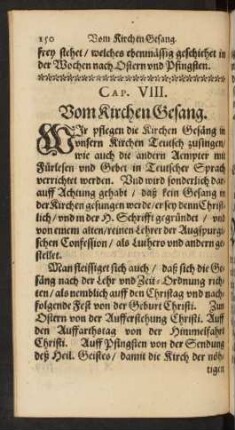 150 Vom Kirchen Gesang.
frey stehet / welches ebenmässig geschiehet in
der Wochen nach Ostern und Pfingsten.
CAP. VIII.
Vom Kirchen Gesang.
WIr pflegen die Kirchen Gesäng in
vnsern Kirchen Teutsch zusingen /
wie auch die andern Aempter mit
Fürlesen und Gebet in Teutscher Sprach
verrichtet werden. Vnd wird sonderlich dar-
auff Achtung gehabt / daß kein Gesang in
der Kirchen gesungen werde / er sey denn Christ-
lich / und in der H. Schrifft gegründet / und
von einem alten / reinen Lehrer der Augspurgi-
schen Confession / als Luthero und andern ge-
stellet.
Man fleissiget sich auch / daß sich die Ge-
säng nach der Lehr und Zeit-Ordnung rich-
ten / als nemblich auff den Christag und nach-
folgende Fest von der Geburt Christi. Zun
Ostern von der Aufferstehung Christi. Auff
den Auffartstag von der Himmelfahrt
Christi. Auff Pfingsten von der Sendung
deß Heil. Geistes / damit die Kirch der nöh-
tigen